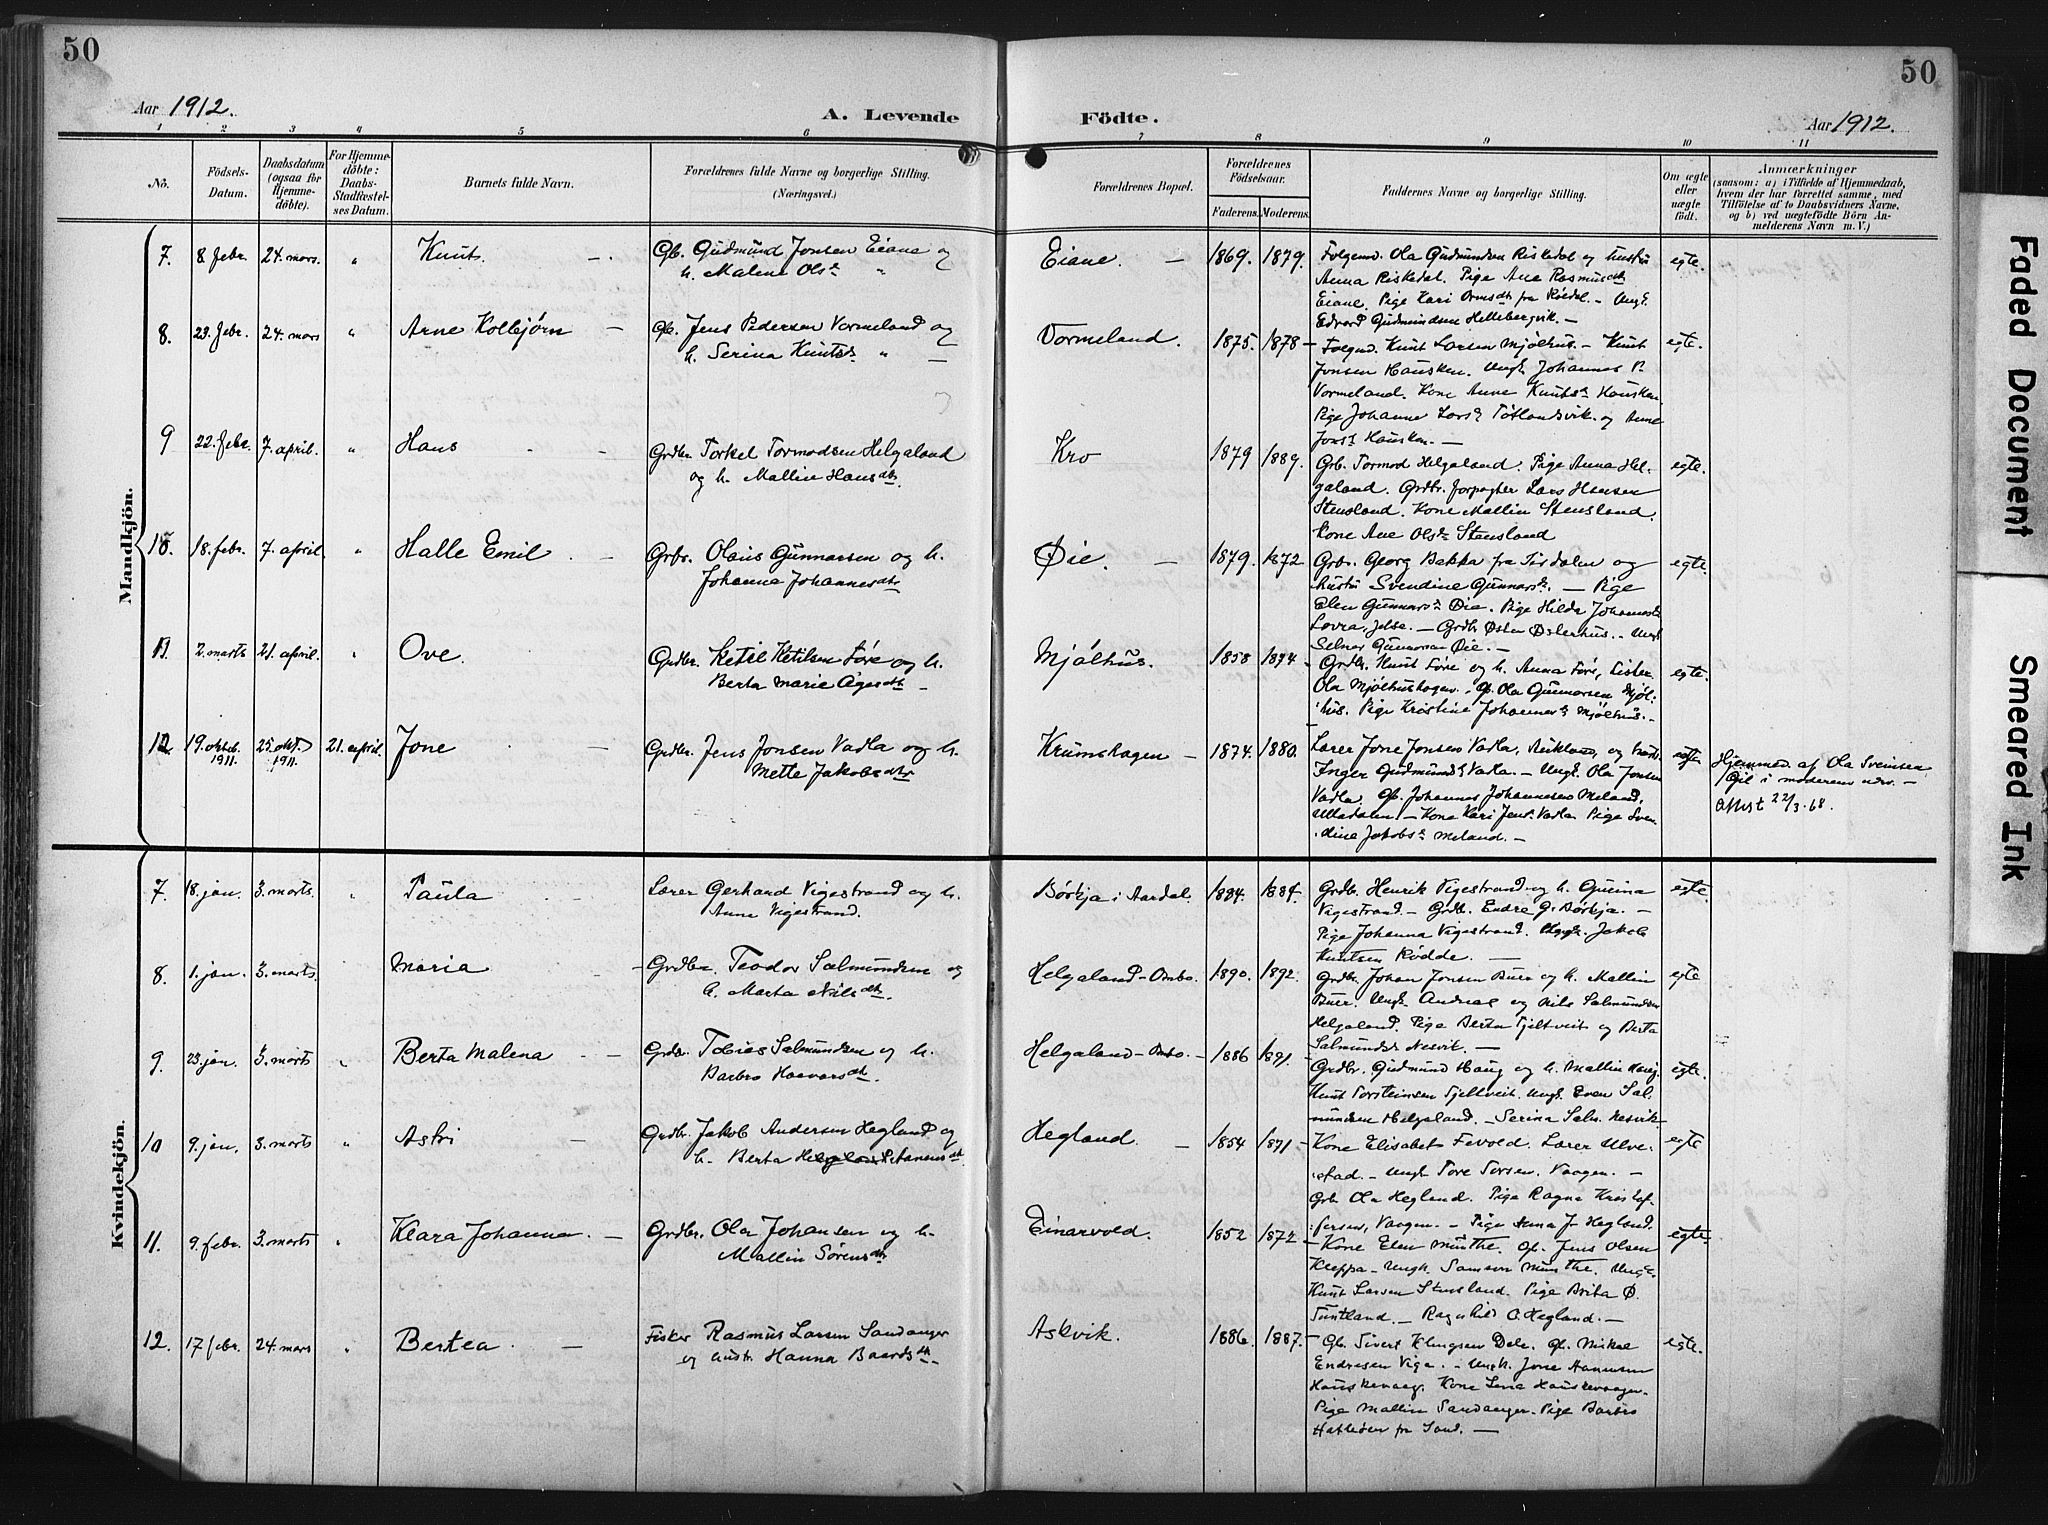 50
50
Aar 1912.
A. Levende
Födte.
Aar 1912.
1 2 3 4 5 6 7 8 9 10 11
No.
Födsels-Datum.
Daabsdatum (ogsaa for Hjemme-döbte).
For Hjemme-döbte: Daabs-Stadfæstel-ses Datum.
Barnets fulde Navn.
Forældrenes fulde Navne og borgerlige Stilling. (Næringsvei.)
Forældrenes Bopæl.
Forældrenes Födselsaar.
Faderens. Moderens.
Faddernes Navne og borgerlige Stilling.
Om ægte eller uægte födt.
Anmærkninger
(saasom: a) i Tilfælde af Hjemmedaab,
hvem der har forrettet samme, med
Tilföielse af to Daabsvidners Navne,
og b) ved uægtefödte Börn An-
melderens Navn m. V.)
Mandkjön.
7. 8 febr. 24. mars. " Knut. — Gb. Gudmund Jonsen Eiane og
h. Malene Olsd. "
Eiane. — 1869. 1879. Folgemd. Ola Gudmundsen Riskedal og hustru egte.
Anna Riskedal. Pige Ane Rasmusdtr
Eiane. Pige Kari Ormsdtr fra Röedal. – Ungk.
Edvard Gudmundsen Hellebergvik. —
8. 23. febr. 24. mars " Arne Kolbjørn — Gb. Jens Pedersen Vormeland og
h. Serina Knutsd. " —
Vormeland. 1875. 1878 – Folgmd. Knut Larsen Mjølhus. – Knut egte.
Jonsen Hausken. Ungk. Johannes P.
Vormeland. Kone Anne Knutsd. Hausken.
Pige Johanne Larsd. Tøtlandsvik. og Anne
Jonsd. Hausken. —
9 22. febr. 7. april. " Hans — Grdbr. Torkel Tormodsen Helgaland
og h. Mallin Hansdtr.
Kro 1879 1889. Grb. Tormod Helgaland. Pige Anna Hel- egte.
galand. Grdbr. forpagter Lars Hansen
Stensland. Kone Mallin Stensland.
Kone Ane Olsd. Stensland
10. 18. febr. 7. april " Halle Emil — Grbr. Olaus Gunnarsen og h.
Johanna Johannesdtr
Øie. — 1879. 1872 Grbr. Georg Bakka fra Tisdalen og egte.
hustru Svendine Gunnarsd. — Pige
Elen Gunnarsd. Øie. Pige Hilda Johannesd.
Lovra, Jelse. – Grdbr Østen Østerhus. – Ungk.
Selmer Gunnarsen Øie. —
11. 2. marts 21. april. " Ove. Grdbr. Ketil Ketilsen Føre og h.
Berta Marie Ågesdtr —
Mjølhus. 1858 1874 – Grdbr. Knut Føre og h. Anna Føre, Lister egte.
Ola Mjølhushagen. Gb. Ola Gunnarsen Mjøl-
hus. Pige Kristine Johannesd. Mjølhus. –
12 19. oktob. 1911. 25. okt. 1911. 21. april. Jone — Grdbr. Jens Jonsen Vadla og h.
Mette Jakobsdtr
Krumshagen – 1874. 1880. Lærer Jone Jonsen Vadla, og egte
Inger Gudmundsd. Vadla. – Ungk. Ola Jonsen
Vadla. Gb. Johannes Johannesen Meland,
Ulladalen – Kone Kari Jensd. Vadla Pige Sven-
dine Jakobsd. Meland. –
Hjemmed. af Ola Sveinsen
Gjil i moderens nærv. –
Attest 22/3-68.
Kvindekjön.
7. 18. jan. 3. marts. " Paula Lærer Gerhard Vigestrand og h.
Anna Vigestrand.
Børkja i Aardal. 1884. 1884. Grdb. Henrik Vigestrand og h. Gurina egte.
Vigestrand. – Grdb. Endre G. Børkja. –
Pige Johanna Vigestrand. Ungk. Jakob
Knutsen Rødde. —
8. 1. jan. 3. marts Maria — Grdbr. Teodor Salmundsen og
h. Marta Nilsdtr.
Helgaland – Ombo. 1890. 1892. Grdbr Johan Jonsen Buer og h. Mallin egte
Buer. Ungk. Andreas og Nils Salmundsen
Helgaland. Pige Berta Tjeltveit og Berta
Salmundsd. Nesvik. —
9. 23. jan. 3. marts " Berta Malena — Grdbr. Tobias Salmundsen og h.
Barbro Haavarsdtr.
Helgaland – Ombo. – 1886 1891. Grdbr. Gudmund Haug og h. Mallin Haug. egte.
Knut Torsteinsen Tjeltveit. Ungk. Even Sal-
mundsen Helgaland. – Serina Salm. Nesvik –
10 9. jan. 3. marts " Astri — Grdbr. Jakob Andersen Hegland og
h. Berta
Hegland. — 1854 1871 – Kone Elisabet Fevold. Lærer Ulve- egte
stad. – Ungk Tore Torsen, Vaagen. –
Grb Ola Hegland. Pige Ragna Kristof-
fersen, Vaagen. – Pige Anna J. Hegland.
11. 9. febr. 3. marts " Klara Johanna. — Grdbr. Ola Johansen og h.
Mallin Sørensdtr
Einarvold. 1852 1872 – Kone Elen Munthe. Gb. Jens Olsen egte
Kleppa – Ungk. Samson Munthe. Ungk.
Knut Larsen Stensland. Pige Brita Ø.
Tuntland. – Ragnhild O. Hegland. —
12. 17 febr. 24. mars " Bertea. — Fisker Rasmus Larsen Sandanger
og hustr. Hanna Baardsdtr. –
Askvik. 1886. 1887. – Gb. Sivert Klungsen Dele. Gb. Mikal egte.
Endresen Viga. – Ungk. Jone Hannesen
Hauskevaag. Kone Lena Hauskevaagen.
Pige Mallin Sandanger. Pige Barbro
Hatleøen fra Sand. —
Faded Document
Smeared Ink